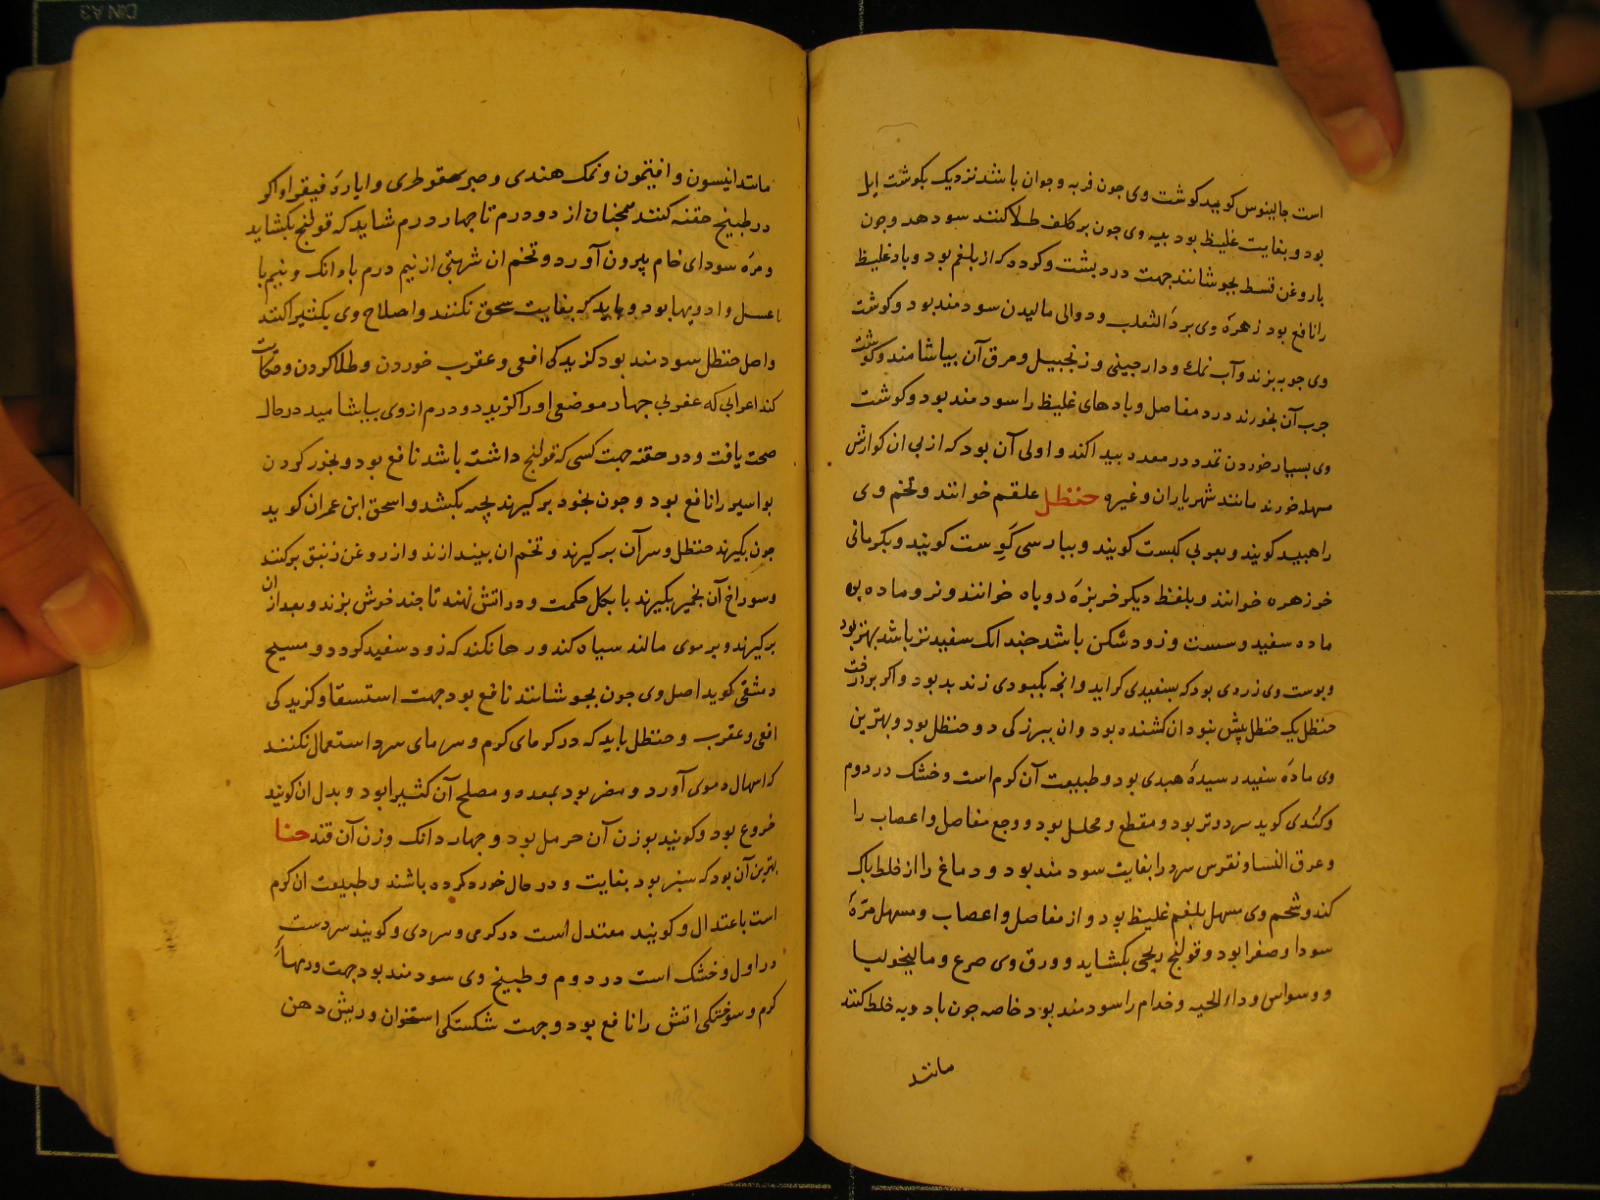 است جالینوس کوید کوشت وی جون فربه و جوان باشد نزدیک بکوشت ایل
بود و بغایت غلیظ بود پیه وی جون بر کلف طلا کنند سود دهد و جون
با روغن قسط بجوشانند جهت درد پشت و کرده که از بلغم بود و باد غلیظ
را نافع بود زهرهٔ وی بر داء الثعلب و دوالی مالیدن سودمند بود و کوشت
وی جو بپزند و آب نمک و دارجینی و زنجبیل و مرق آن بیاشامند و کوشت
جرب آن بخورند درد مفاصل و بادهای غلیظ را سودمند بود و کوشت
وی بسیار خوردن تمدد در معده بیدا کند و اولی آن بود که از بی ان کوارش
مسهله خورند مانند شهریاران و غیره حنظل علقم خوانند و تخم وی
را هبید کویند و بعربی کبست کویند و بپارسی کوست کویند و بکرمانی
خرزهره خوانند و بلفظ دیکر خربزهٔ روباه خوانند و نر و ماده بود
ماده سفید و سست و زود شکن باشد جندانک سفیدتر باشد بهتر بود
و پوست وی زردی بود که بسفیدی کراید و انجه بکبودی زند بد بود و اکر بر درخت
حنظل یک حنظل پیش نبود ان کشنده بود و ان ببزرکی دو حنظل بود و بهترین
وی مادهٔ سفید رسیدهٔ هبدی بود و طبیعت آن کرم است و خشک در دوم
و کندی کوید سرد و تر بود و مقطع و محلل بود و وجع مفاصل و اعصاب را
و عرق النسا و نقرس سرد را بغایت سودمند بود و دماغ را از خلط پاک
کند و شحم وی مسهل بلغم غلیظ بود و از مفاصل و اعصاب و مسهل مرّهٔ
سودا و صفرا بود و قولنج ریحی بکشاید و ورق وی صرع و مالیخولیا
و وسواس و داء الحیه و جذام را سودمند بود خاصه جون بادویه خلط کنند
مانند
مانند انیسون و افتیمون و نمک هندی و صبر سقوطری و ایارهٔ فیقرا و اکر
در طبیخ حقنه کنند همجنان از دو درم تا جهار درم شاید که قولنج بکشاید
و مرهٔ سودای خام بیرون آورد و تخم ان شربتی از نیم درم با دانک و نیم با
عسل و ادویها بود و باید که بغایت سحق نکنند و اصلاح وی بکثیرا کنند
و اصل حنظل سودمند بود کزیدکی افعی و عقرب خوردن و طلا کردن و حکایت
کند اعرابی که عقربی جهار موضع او را کزید دو درم از وی بیاشامید در حال
صحت یافت و در حقنه جهت کسی که قولنج داشته باشد نافع بود و بخور کردن
بواسیر را نافع بود و جون بخود برکیرند بچه بکشد و اسحق ابن عمران کوید
جون بکیرند حنظل و سر آن برکیرند و تخم ان بیندازند و از روغن زنبق برکنند
و سوراخ آن بخمیر بکیرند یا بکل حکمت و در اتش نهند تا جند خوش بزند و بعد از ان
برکیرند و بر موی مالند سیاه کند و رها نکند که زود سفید کردد و مسیح
دمشقی کوید اصل وی جون بجوشانند نافع بود جهت استسقا و کزیدکی
افعی و عقرب و حنظل باید که در کرمای کرم و سرمای سرد استعمال نکنند
که اسهال دموی آورد و مضر بود بمعده و مصلح آن کثیرا بود و بدل ان کویند
خروع بود و کویند بوزن آن حرمل بود و جهار دانک وزن آن قند حنا
بهترین آن بود که سبز بود بغایت و در حال خورد کرده باشند و طبیعت ان کرم
است باعتدال و کویند معتدل است در کرمی و سردی و کویند سردست
در اول و خشک است در دوم و طبیخ وی سودمند بود جهت ورمهاءِ
کرم و سوختکی اتش را نافع بود و جهت شکستکی استخوان و ریش دهن